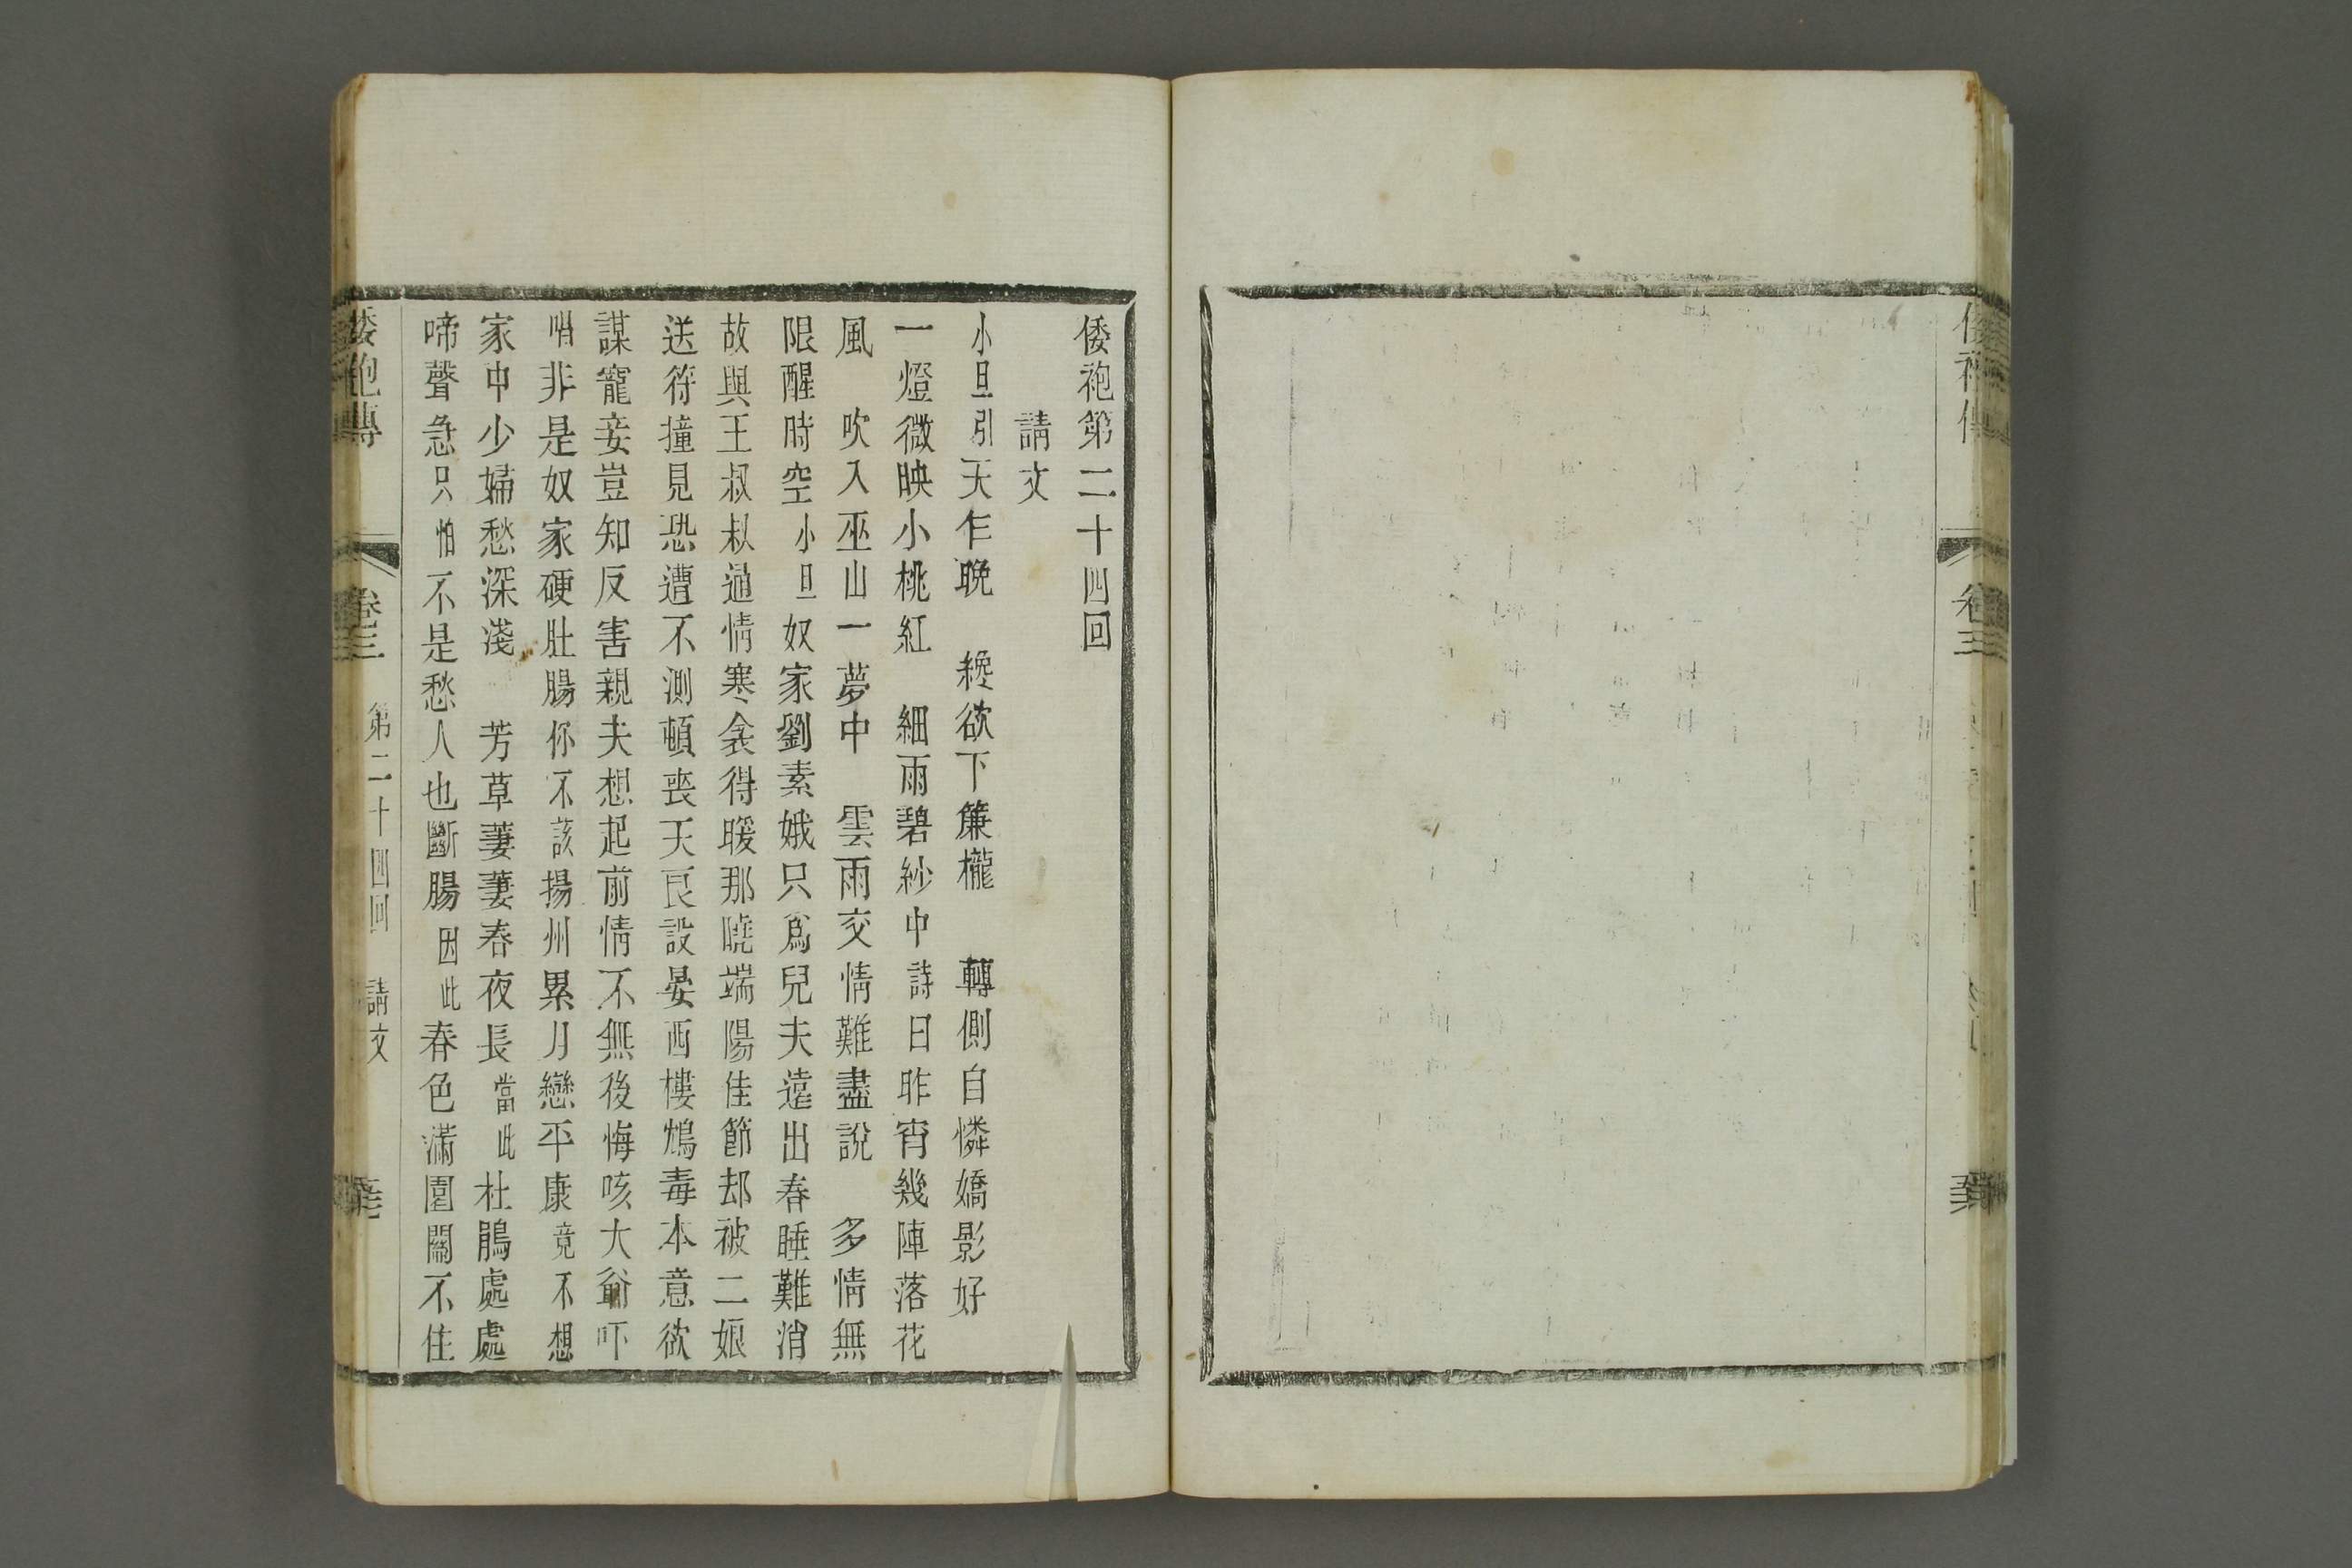 倭袍傳
卷三
倭袍第二十四回
請文
小旦引天乍晚 纔欲下簾櫳 轉側自憐嬌影好
一燈微映小桃紅 細雨碧紗中詩曰昨宵幾陣落花
風 吹入巫山一夢中 雲雨交情難盡說 多情無
限醒時空小旦奴家劉素娥只爲兒夫遠出春睡難消
故與王叔叔通情寒衾得暖那曉端陽佳節却被二娘
送符撞見恐遭不測頓喪天良設晏西樓鴆毒本意欲
謀寵妾豈知反害親夫想起前情不無後悔咳大爺吓
唱非是奴家硬肚腸你不該揚州累月戀平康竟不想
家中少婦愁深淺 芳草萋萋春夜長當此杜鵑處處
啼聲急只怕不是愁人也斷腸因此春色滿園關不住
倭袍傳
卷三
第二十四回
請文